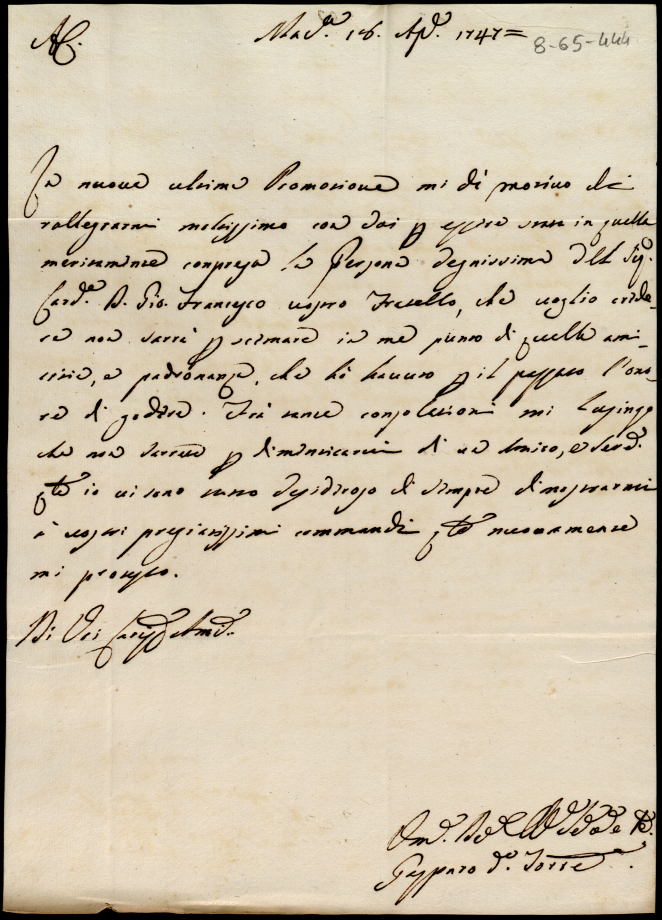 AC.
Mad.ª 16. Ap.e 1747=
8-65-444
La nuova ultima Promozione mi dà motivo di
rallegrarmi moltissimo con Voi p essere stata in quella
meritamente compresa la Persona degnissima del Sig.
Card.e D. Gio. Francesco vostro Fratello, che voglio crede-
re non sarrà p scemare in me punto di quella ami-
cizia, e padronanza, che hò havuto p il passato l'ono-
re di godere. Frà tante consolazioni mi lusingo
che non sarrete p dimenticarvi di un Amico, e Serv.e
io vi sono tanto desideroso di sempre dimostrarmi
à vostri pregiatissimi commandi nuovamente
mi protesto.
Di Voi
Gasparo d. Torre